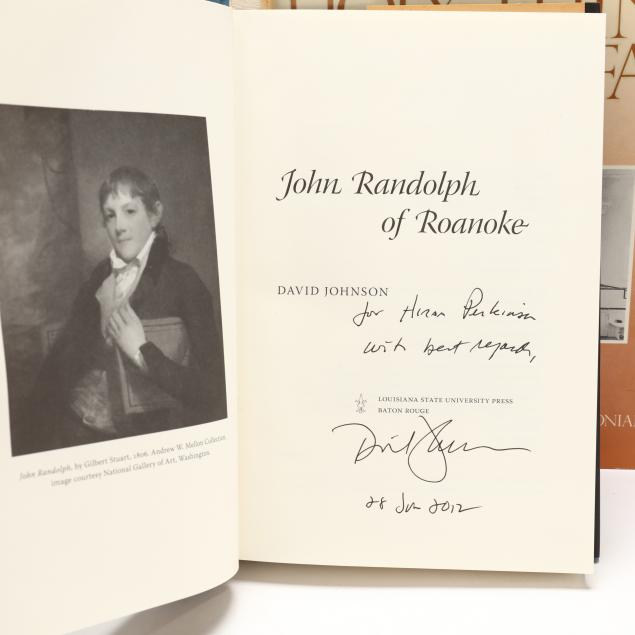 John Randolph, by Gilbert Stuart, 1806. Andrew W. Mellon Collection,
image courtesy National Gallery of Art, Washington.
John Randolph
of Roanoke
DAVID JOHNSON
for Hiram Perkinson
with best regards,
LOUISIANA STATE UNIVERSITY PRESS
BATON ROUGE
David Johnson
28 Jun 2012